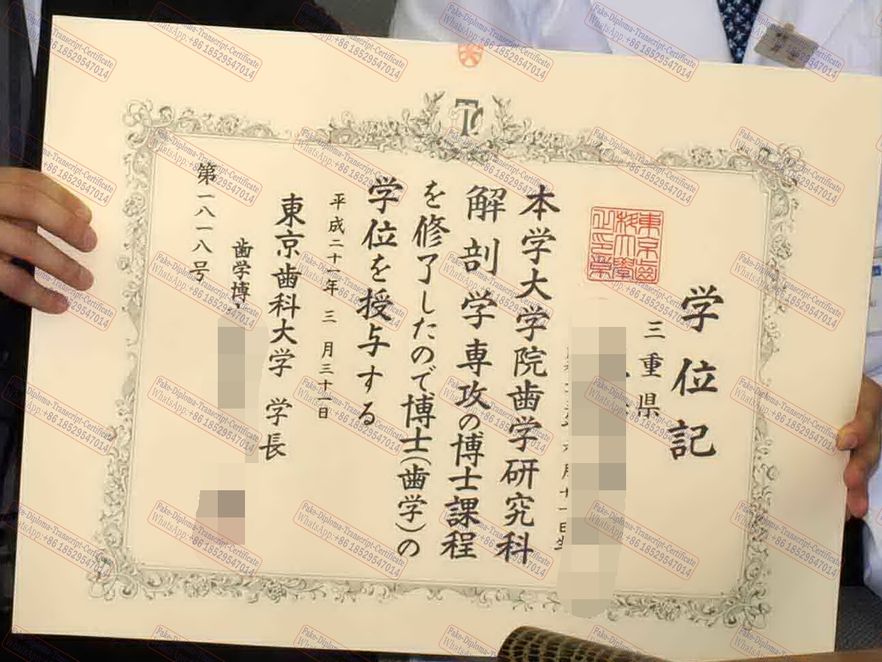 学位記
三重県
本学大学院歯学研究科
解剖学専攻の博士課程
を修了したので博士(歯学)の
学位を授与する
平成二十一年三月三十一日
東京歯科大学 学長
歯学博
第一八一八号
Fake-Diploma-Transcript-Certificate
WhatsApp:+86 18529547014